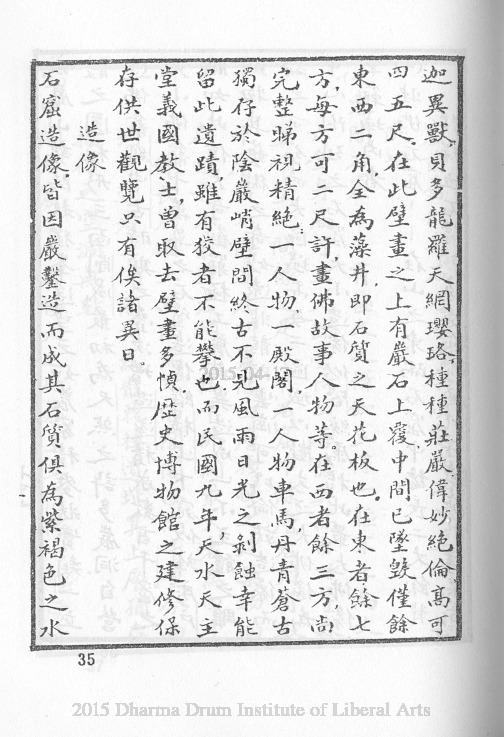 迦異獸，貝多龍羅天網瓔珞，種種莊嚴偉妙絕倫，高可
四五尺。在此壁畫之上有巖石上覆，中間已墜毀，僅餘
東西二角，全為藻井，即石質之天花板也，在東者餘七
方，每方可二尺許，畫佛故事人物等。在西者餘三方，尚
完整睇視精絕：一人物，一殿閣，一人物車馬，丹青蒼古
獨存於陰巖峭壁間終古不見風雨日光之剝蝕，幸能
留此遺蹟，雖有狡者不能攀也，而民國九年，天水天主
堂義國教士，曾取去壁畫多幀，歷史博物館之建修保
存供世觀覽，只有俟諸異日。
造像
石窟造像，皆因巖鑿造而成，其石質俱為紫褐色之水
2015-04-
35
2015 Dharma Drum Institute of Liberal Arts